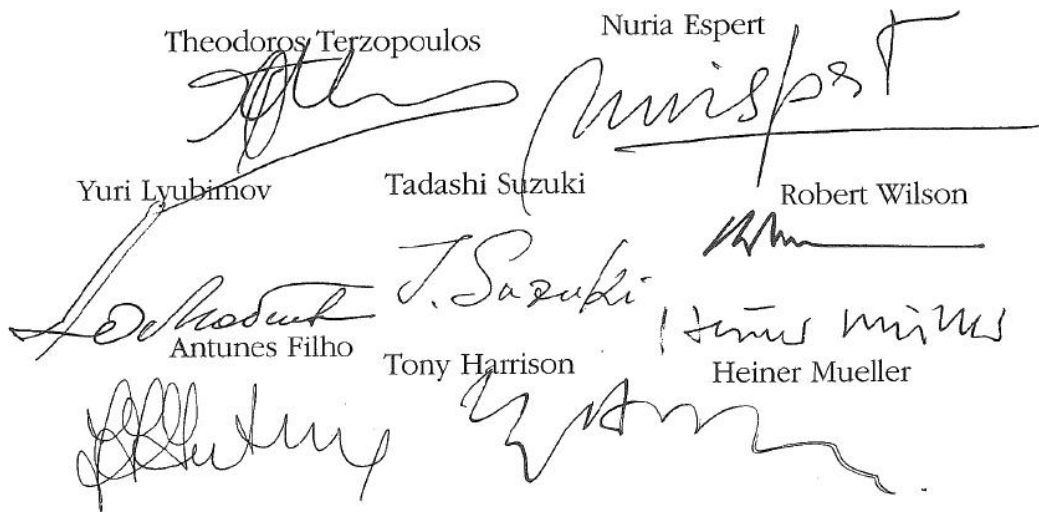 Theodoros Terzopoulos
Nuria Espert
Yuri Lyubimov
Tadashi Suzuki
Robert Wilson
T. Suzuki
Heiner Müller
Antunes Filho
Tony Harrison
Heiner Mueller